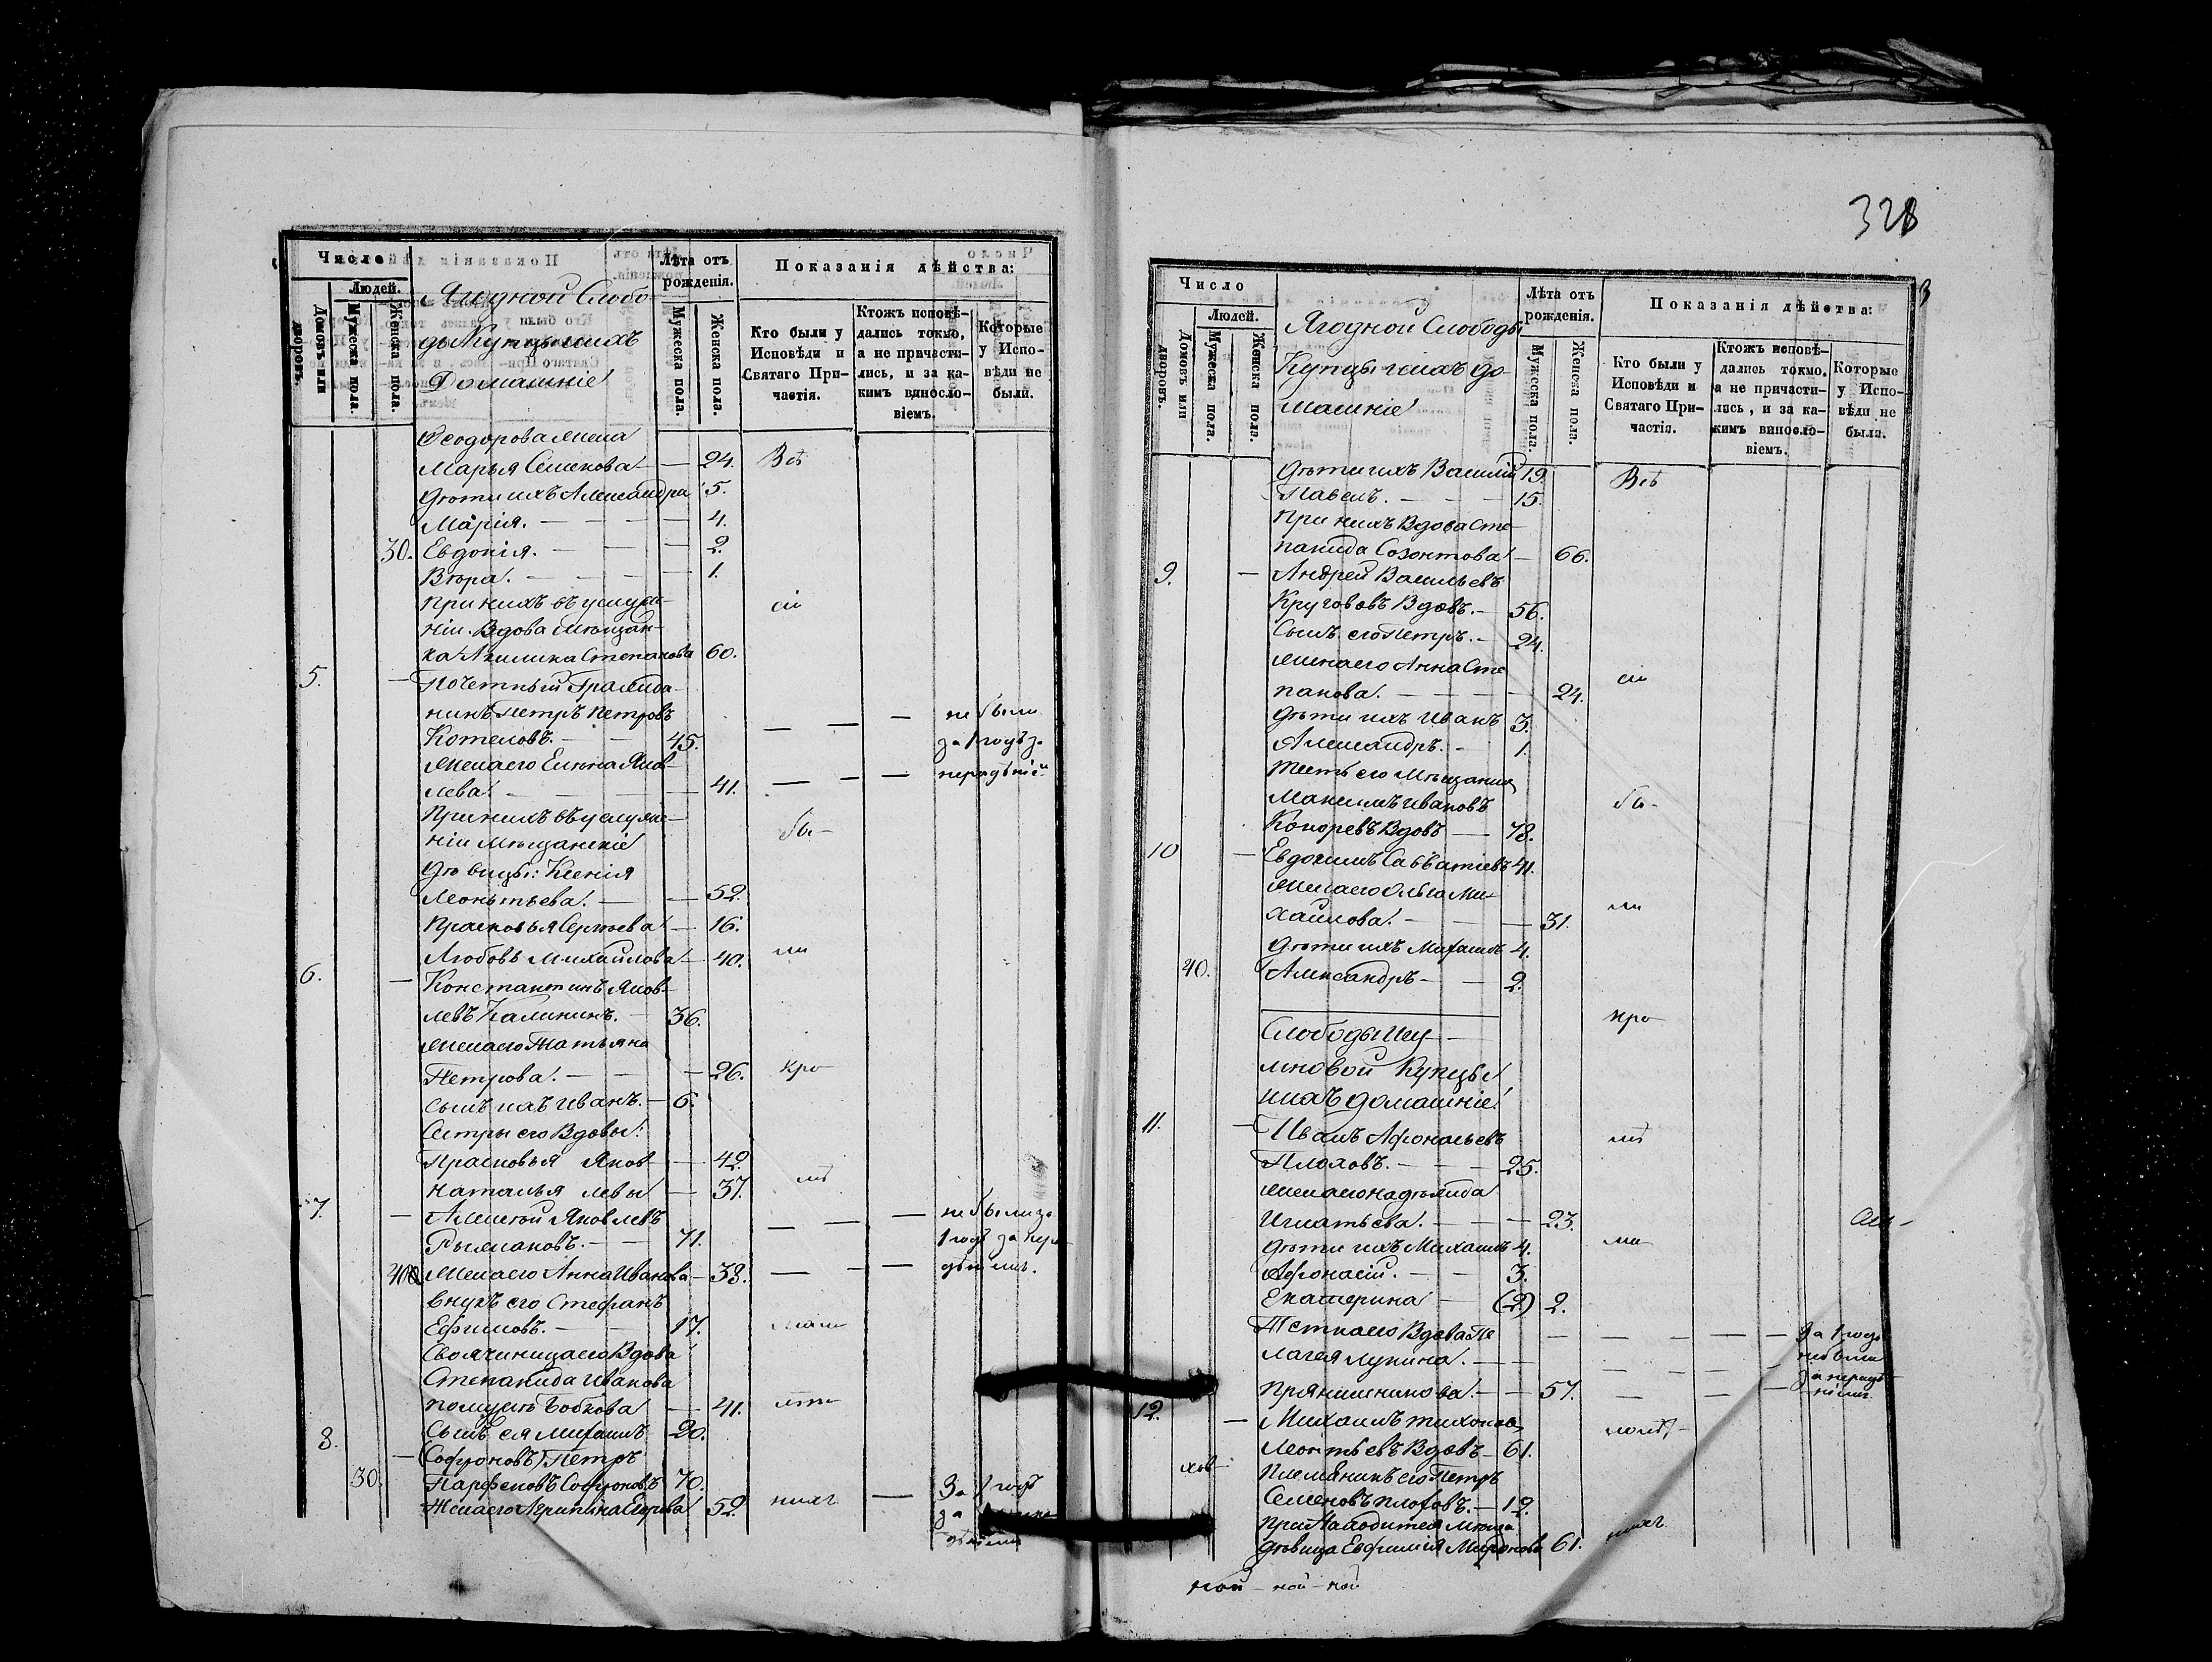 328
Число
Людей.
Домовъ или дворовъ.
Мужеска пола.
Женска пола.
Ягодной Слобо
ды Купцы и ихъ
Домашніе
Лѣта отъ рожденія.
Мужеска пола.
Женска пола.
Показанія дѣйства:
Кто были у Исповѣди и Святаго Причастія.
Ктожъ исповѣдались токмо, а не причастились, и за какимъ винословіемъ.
Которые у Исповѣди не были.
Феодорова жена
Марья Семенова — 24. Всѣ
дѣти ихъ Александра 5.
Марія. — 4.
30. Евдокія. — 2.
Вѣра. — 1.
При нихъ въ услуже-
ніи Вдова Мѣщан-
ка Акилина Степанова 60.
5. — Почетный Гражда-
нинъ Петръ Петровъ — не были
Котеловъ. — 45. за 1 годъ за
Жена его Елена Яков-
лева — 41. — нерадѣніе
При нихъ въ услуже-
ніи Мѣщанскіе бы-
дѣвицы: Ксенія
Леонтьева. — 52.
Прасковья Сергѣева — 16.
Любовь Михайлова — 40. ли
6. — Константинъ Яков-
левъ Калининъ. — 36.
Жена его Татьяна
Петрова. — 26. Кро
Сынъ ихъ Иванъ. — 6.
Сестры его Вдовы:
Прасковья Яков- — 42.
Наталья левы — 37.
7. — Алексѣй Яковлевъ — не были за
Рыжаковъ. — 71. 1 годъ за нера
40 Жена его Анна Иванова — 38. — дѣніемъ.
Внукъ его Стефанъ
Ефимовъ. — 17.
Своячиница его Вдова
Степанида Иванова
Бобкова — 41.
Сынъ ея Михаилъ 20.
8. — Софроновъ Петръ
30. Парфеновъ Софроновъ 70. За 1 годъ
Жена его Агрипина Егорова 52. нихъ — за
Число
Людей.
Домовъ или дворовъ.
Мужеска пола.
Женска пола.
Ягодной Слободы
Купцы и ихъ до
машніе
Лѣта отъ рожденія.
Мужеска пола.
Женска пола.
Показанія дѣйства:
Кто были у Исповѣди и Святаго Причастія.
Ктожъ исповѣдались токмо, а не причастились, и за какимъ винословіемъ.
Которые у Исповѣди не были.
дѣти ихъ Василій 19. Всѣ
Павелъ. — 15.
При нихъ Вдова Сте-
панида Созонтова — 66.
9. — Андрей Васильевъ
Круговъ Вдовъ. — 56.
Сынъ его Петръ. — 24.
Жена его Анна Сте
панова. — 24. сіи
дѣти ихъ Иванъ 3.
Александръ. — 1.
Тесть его Мѣщанинъ
Максимъ Ивановъ бы-
Вдовъ — 78.
10 — Евдокимъ Савватіевъ 41.
Жена его Ольга Ми-
хайлова. — 31. ли
дѣти ихъ Михаилъ 4.
40. Александръ — 2.
Кро
Слободы Игу-
мновой Купцы и
ихъ домашніе
11. — Иванъ Афонасьевъ мѣ
Плоховъ. — 25.
Жена его Надежда
Игнатьева. — 23.
дѣти ихъ Михаилъ 4.
Афонасій. — 3.
Екатерина — (2) 2.
Тетка его Вдова Пе — За 1 годъ
лагея Лукина. — не была
Прянишникова. — 57. — за нерадѣ
ніемъ.
12. — Михаилъ Тихоновъ
Леонтьевъ Вдовъ — 61.
Племяникъ его Петръ
Семеновъ Плоховъ. — 12.
При находится Мѣща
дѣвица Евфимія Миронова 61. нихъ
ной — ной — ной